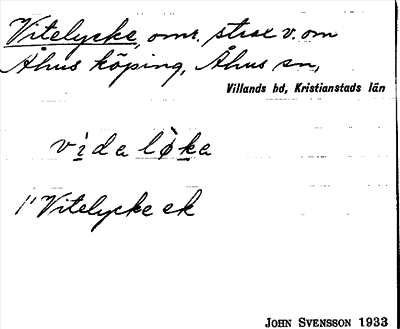 Vitelycke, omr. strax v. om
Åhus köping, Åhus sn,
Villands hd, Kristianstads län
vìda lø̀ka
1" Vitelycke ek
JOHN SVENSSON 1933